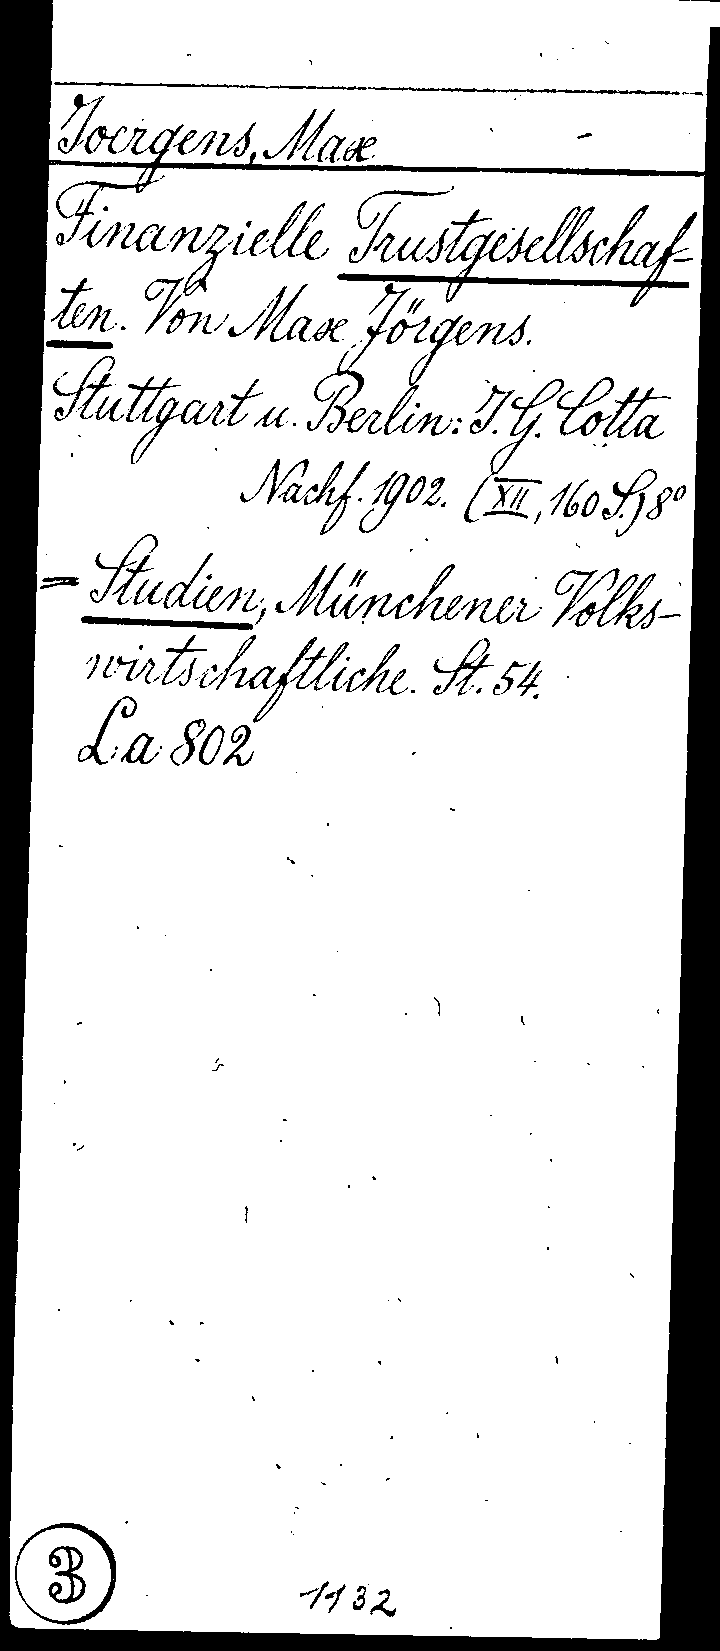 Joergens, Max
Finanzielle Trustgesellschaf-
ten. Von Max Jörgens.
Stuttgart u. Berlin: J. G. Cotta
Nachf. 1902. (XII, 160 S.) 8°
= Studien, Münchener Volks-
wirtschaftliche. St. 54.
La 802
3
1132